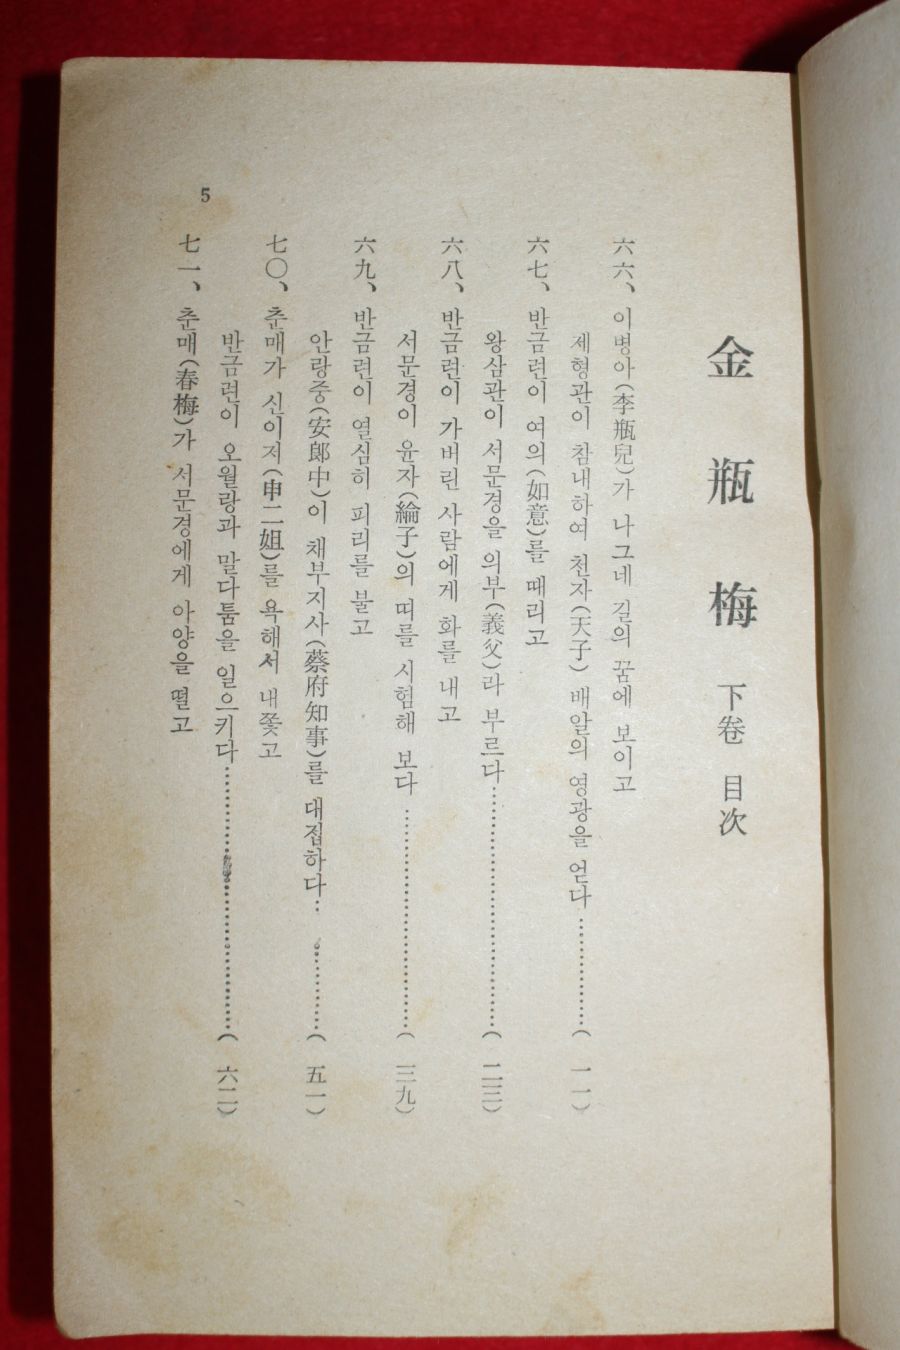 金瓶梅 下卷 目次
六六、이병아(李瓶兒)가 나그네 길의 꿈에 보이고
제형관이 참내하여 천자(天子) 배알의 영광을 얻다……………( 一一)
六七、반금련이 여의(如意)를 때리고
왕삼관이 서문경을 의부(義父)라 부르다……………………………( 二三)
六八、반금련이 가버린 사람에게 화를 내고
서문경이 윤자(綸子)의 띠를 시험해 보다……………………………( 三九)
六九、반금련이 열심히 피리를 불고
안랑중(安郎中)이 채부지사(蔡府知事)를 대접하다……………( 五一)
七〇、춘매가 신이저(申二姐)를 욕해서 내쫓고
반금련이 오월랑과 말다툼을 일으키다……………………………( 六二)
七一、춘매(春梅)가 서문경에게 아양을 떨고
5